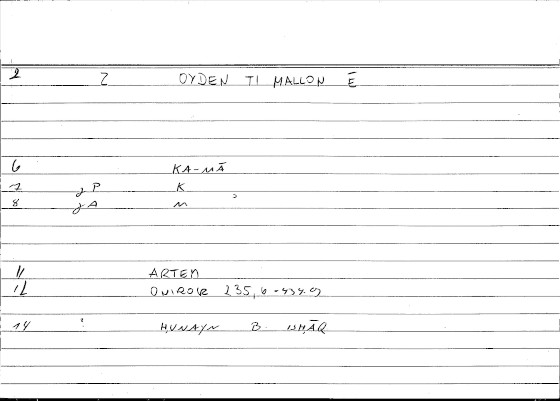 2 Z OYDEN TI MALLON Ē
6 KA-MĀ
7 gP K
8 gA M
11 ARTEM
12 ONIROKR 235, 6
14 ḤUNAYN B. ISḤĀQ